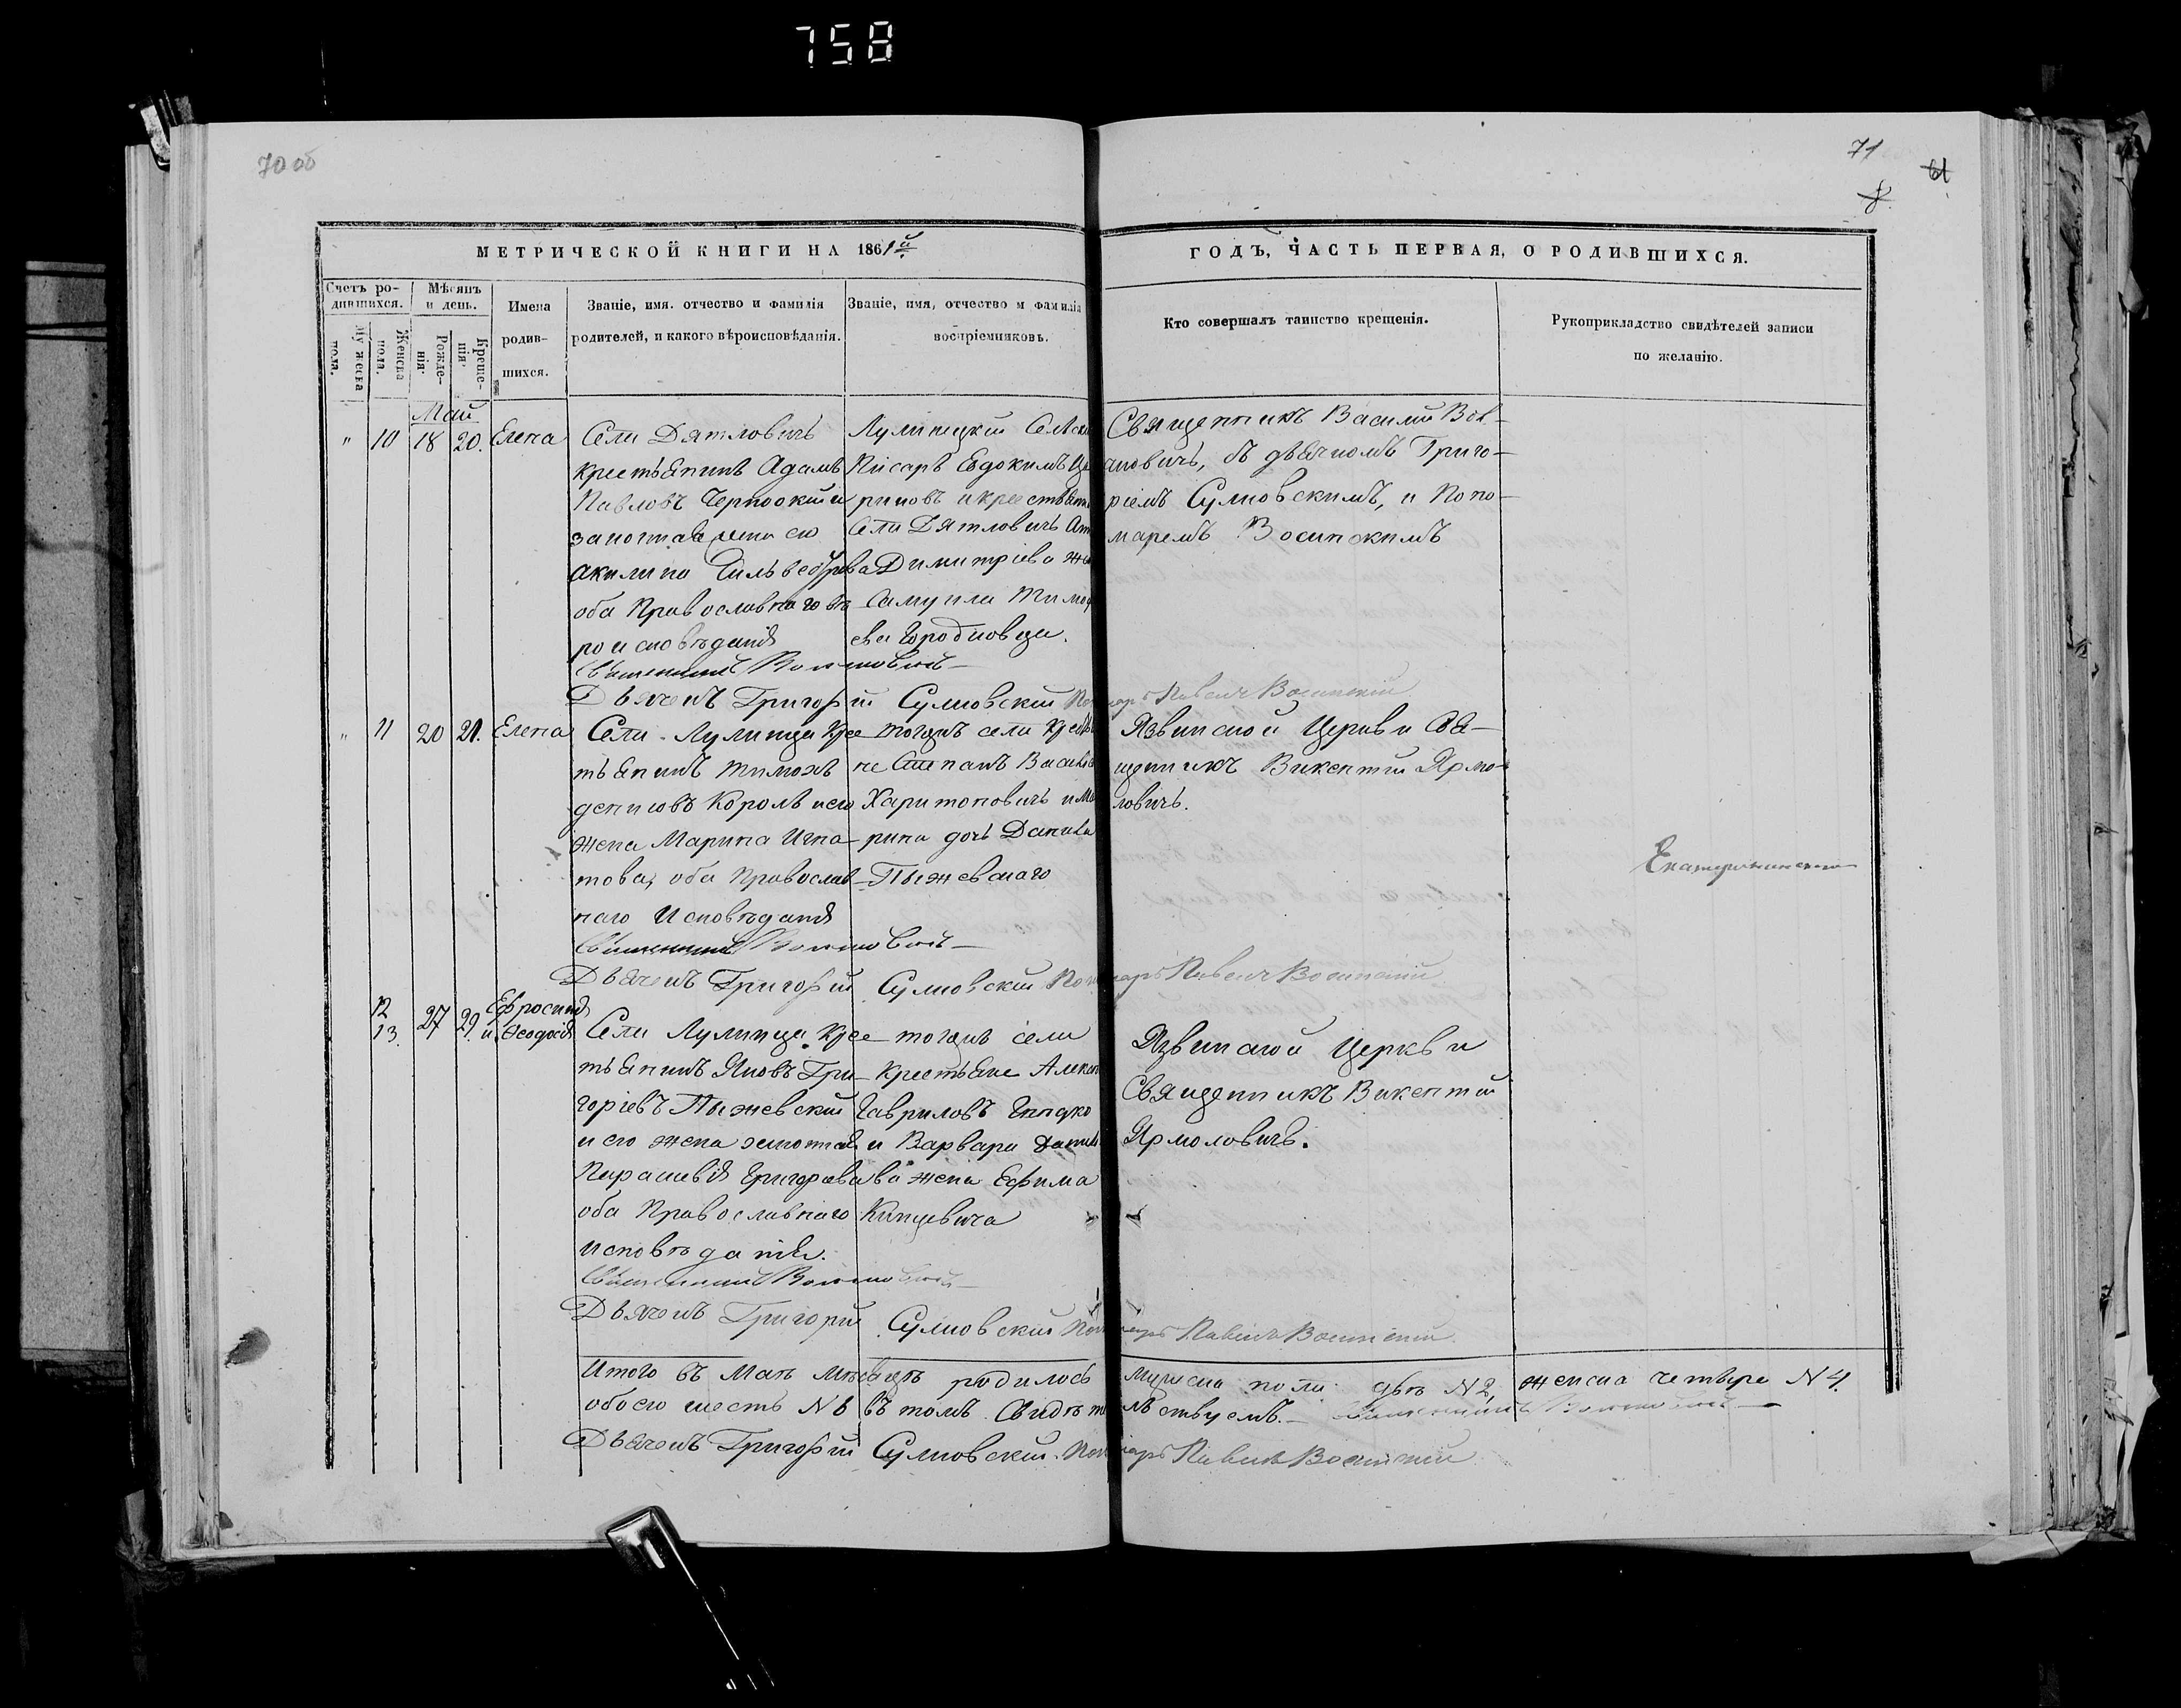 758
70 об
71
МЕТРИЧЕСКОЙ КНИГИ НА 1861й
ГОДЪ, ЧАСТЬ ПЕРВАЯ, О РОДИВШИХСЯ.
Счетъ ро-
дившихся.
Мѣсяцъ
и день.
Имена
родив-
шихся.
Званіе, имя. отчество и фамилія
родителей, и какого вѣроисповѣданія.
Званіе, имя, отчество и фамилія
воспріемниковъ.
Кто совершалъ таинство крещенія.
Рукоприкладство свидѣтелей записи
по желанію.
Мужеска
пола.
Женска
пола.
Рожде-
нія
Креще-
нія
Май
" 10 18 20. Елена
Села Дятловичъ
крестьянинъ Адамъ
Павловъ Черноокий и
законная жена его
Акилина Сильвестрова
оба Православнаго вѣ
роисповѣданія
Лулинецкий Сельски
Писарь Евдокимъ
риновъ и крестьянк
Села Дятловичъ
Димитріева же
Самуила Тимоф
ева Городновца.
Священникъ Василий Вол-
ановичъ, съ дьячкомъ Григо-
ріемъ Сулковскимъ, и Поно-
маремъ Восинскимъ
Священникъ
Дьячокъ Григорій Сулковский Пономарь Павелъ Восинский
" 11 20 21. Елена
Села Лулинца Кре
тьянинъ Тимохъ
Денисовъ Король и его
жена Марина Игна
това, оба Православ
наго Исповѣданія
тогожъ села Кресть
не Степанъ Василь
Харитоновичъ и Ма
рина дочь Данила
Пыжевскаго
Язвинской Церкви Свя-
щенникъ Викентий Ярмо-
ловичъ.
Священникъ
Дьячокъ Григорій Сулковский Пономарь Павелъ Восинский
12
13. 27 29. Ефросинія
и Ѳеодосія
Села Лулинца Кре
тьянинъ Яковъ Гри
горіевъ Пыжевский
и его жена законная
Парасковія Григоріева
оба Православнаго
исповѣданія.
тогожъ села
крестьяне Алексѣ
Гавриловъ Гладко
и Варвара Данил
ва жена Ефима
Кунцевича
Язвинской Церкви
Священникъ Викентий
Ярмоловичъ.
Священникъ
Дьячокъ Григорій Сулковский Пономарь Павелъ Восинский
Итого въ Маѣ мѣсяцѣ родилось мужска пола двѣ N 2, женска четыре N 4.
обоего шесть N 6 въ томъ свидѣтельствуемъ. Священникъ
Дьячокъ Григорій Сулковский. Пономарь Павелъ Восинский